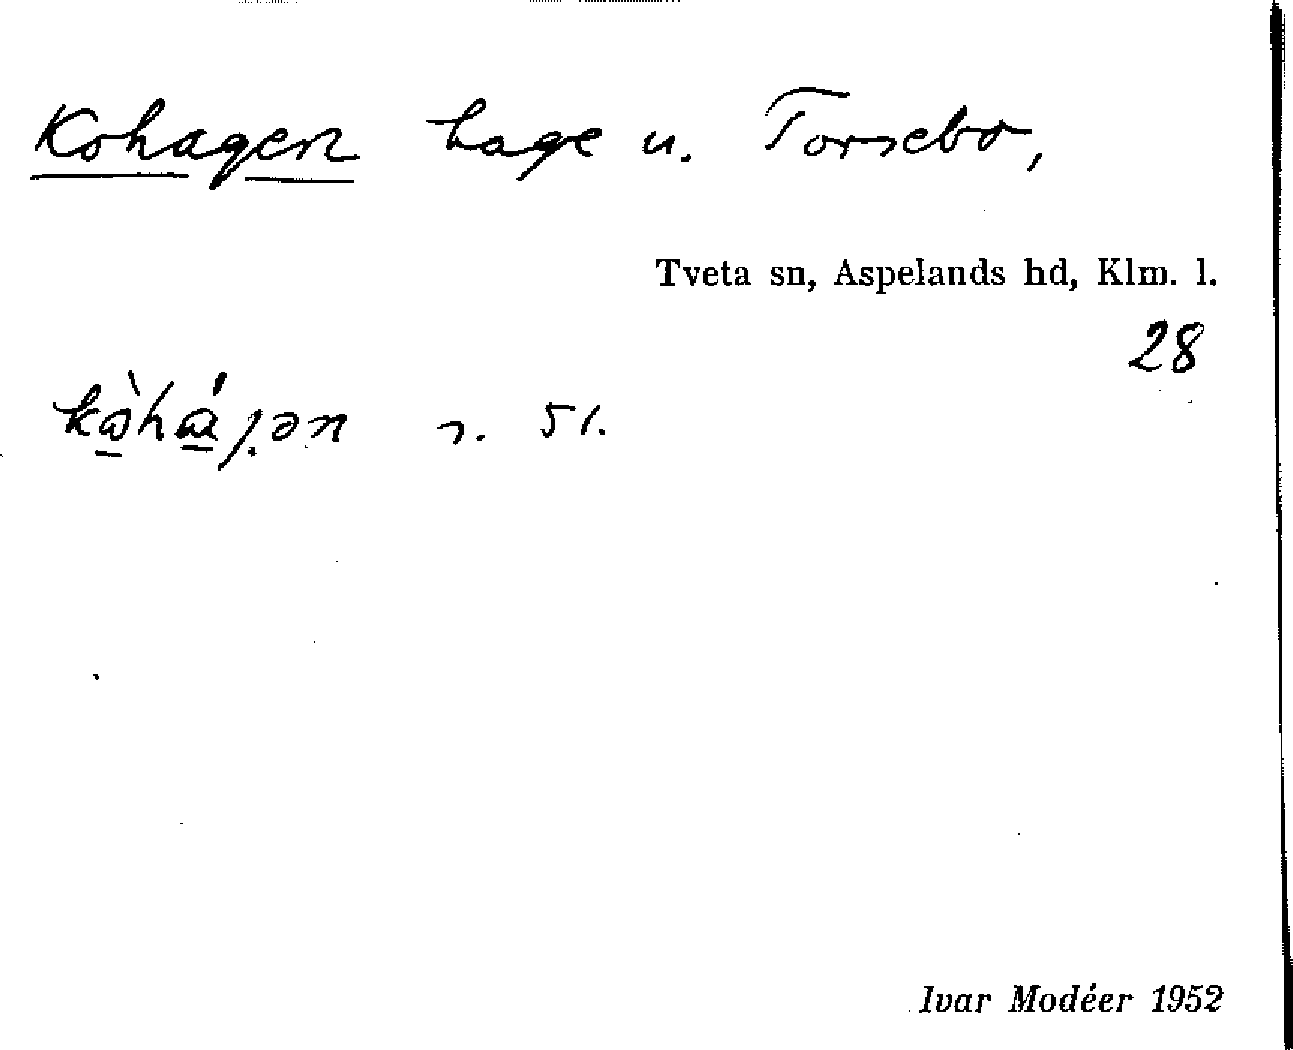 Kohagen hage u. Torsebo,
Tveta sn, Aspelands hd, Klm. l.
28
51.
Ivar Modéer 1952